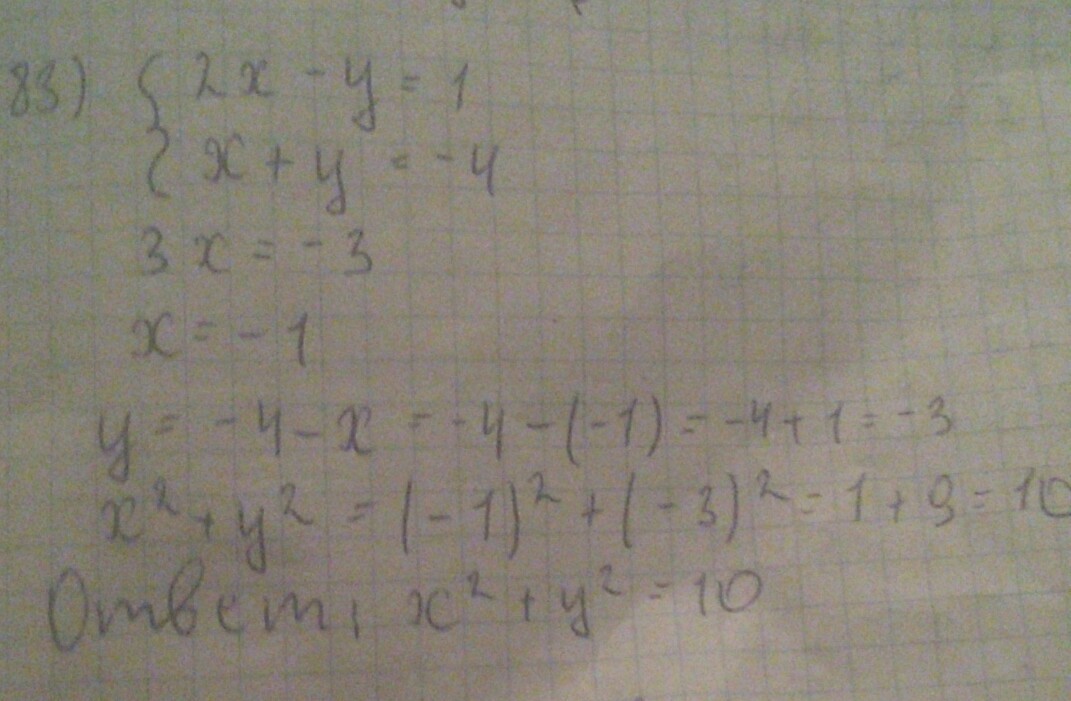 83) { 2x - y = 1
x + y = -4
3x = -3
x = -1
y = -4 - x = -4 - (-1) = -4 + 1 = -3
x² + y² = (-1)² + (-3)² = 1 + 9 = 10
Ответ: x² + y² = 10